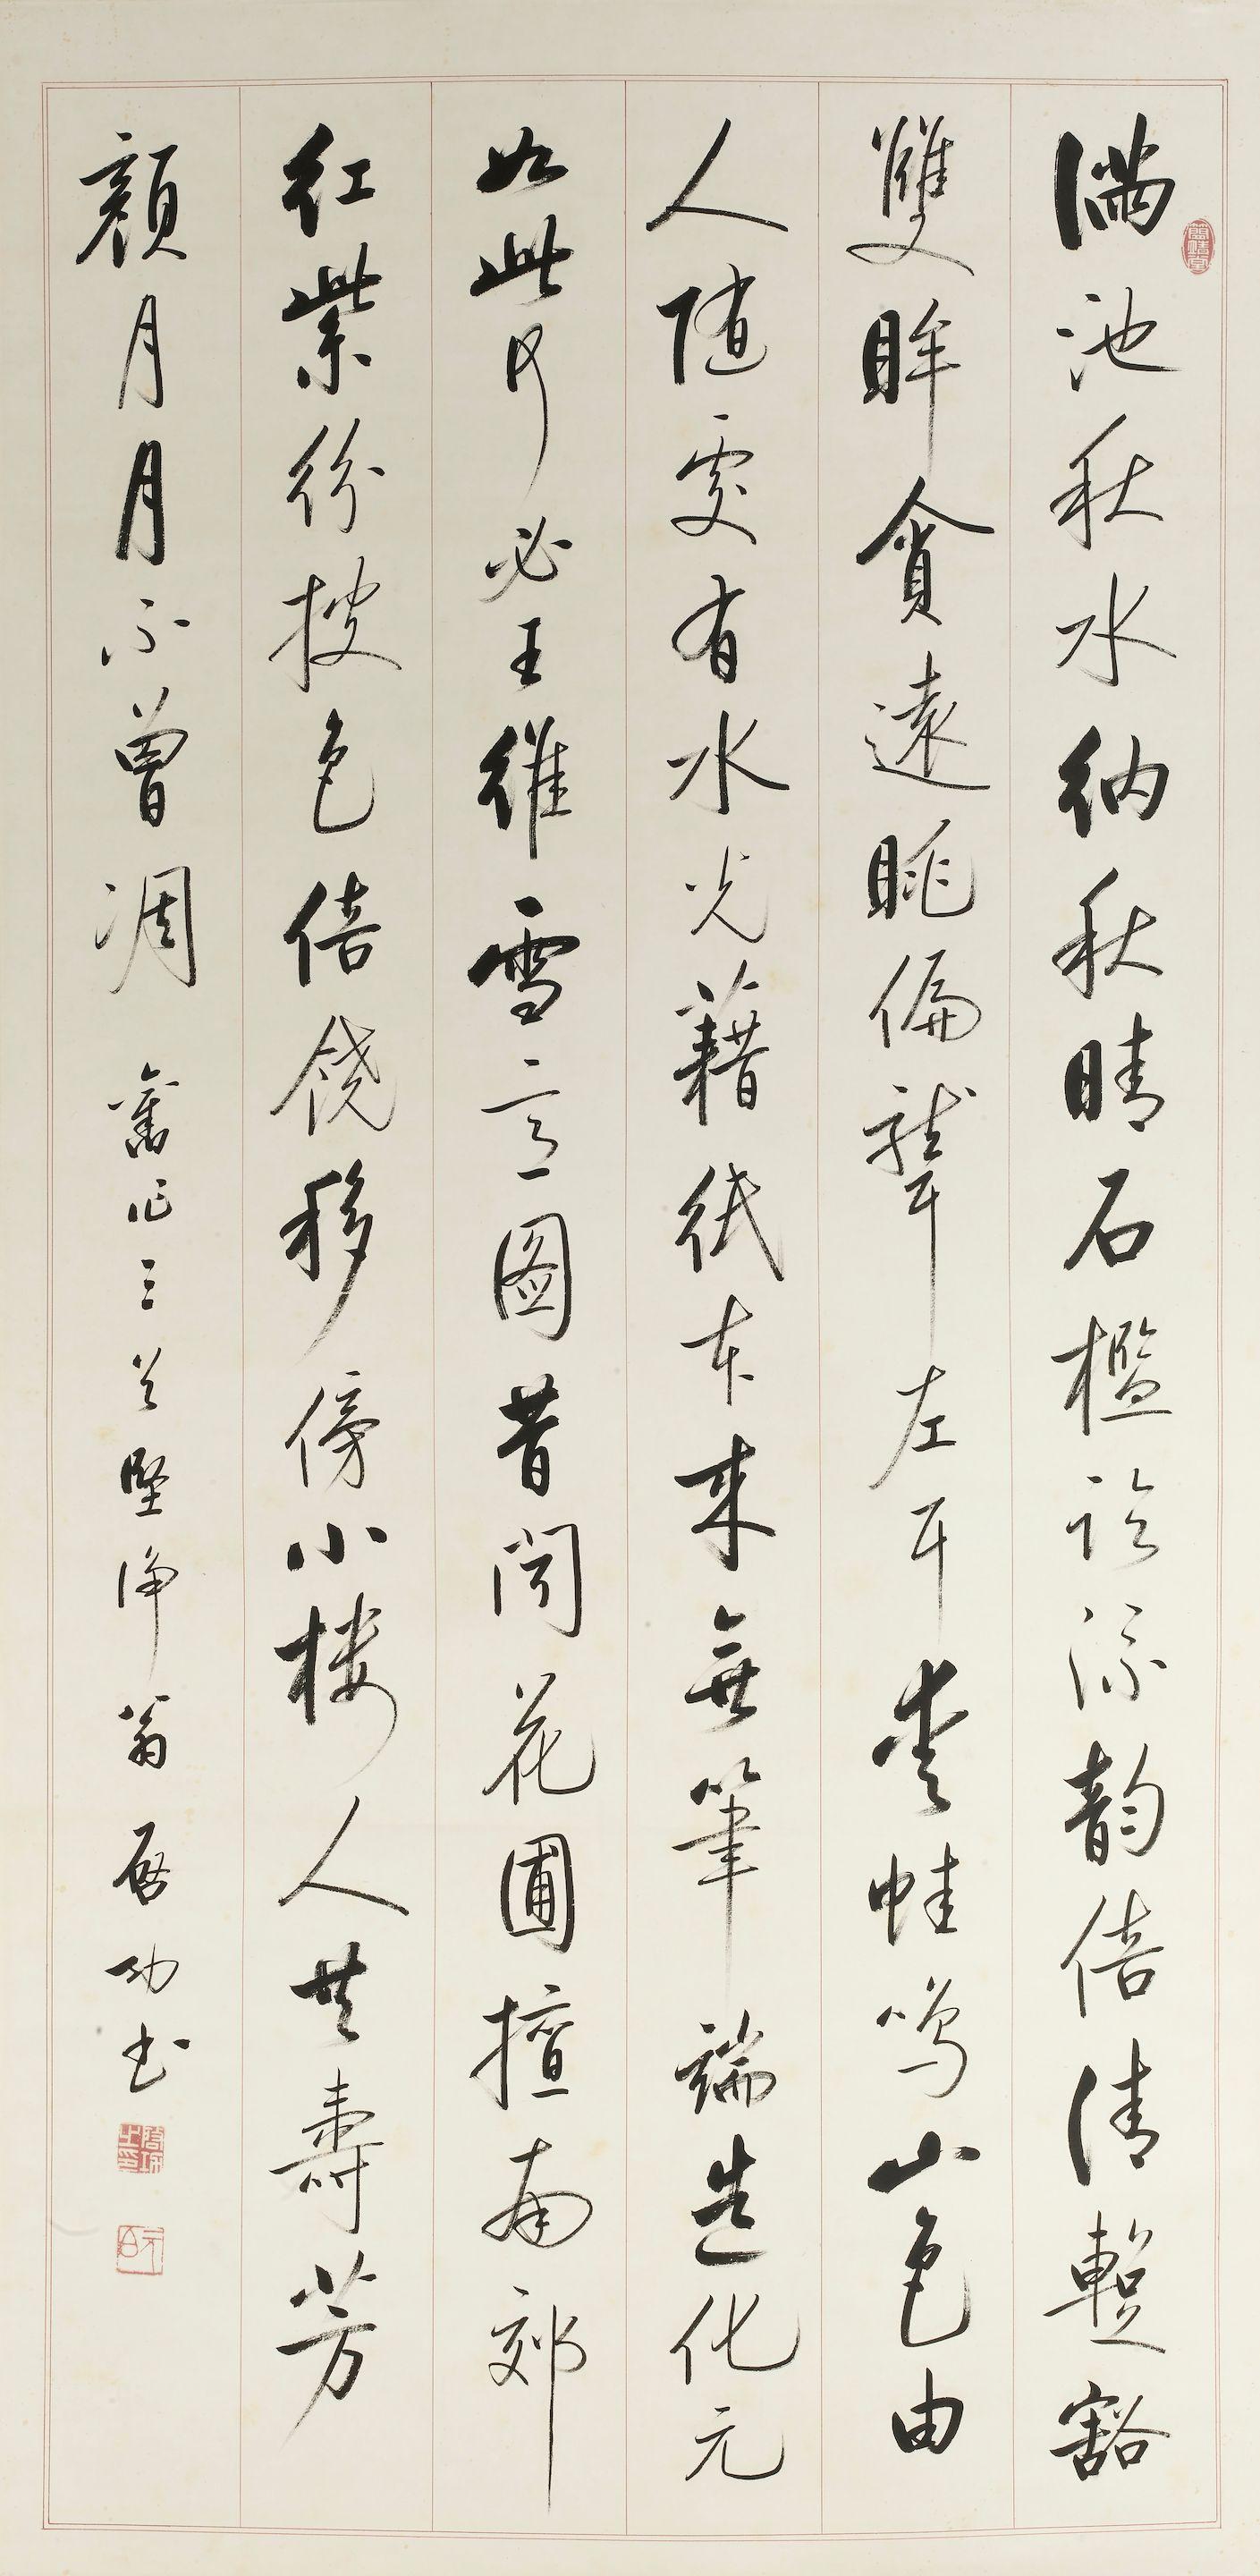 滿池秋水納秋晴石檻臨流韵倍清暫豁
雙眸貪遠眺偏聾左耳愛蛙鳴山色由
人随處有水光藉紙本來無筆端造化元
如此何必王維雪意圖昔聞花圃擅南郊
紅紫紛披色倍饒移傍小楼人共壽芳
顏月月不曾凋 舊作三首 堅淨翁 啟功書
啟功之印
元白